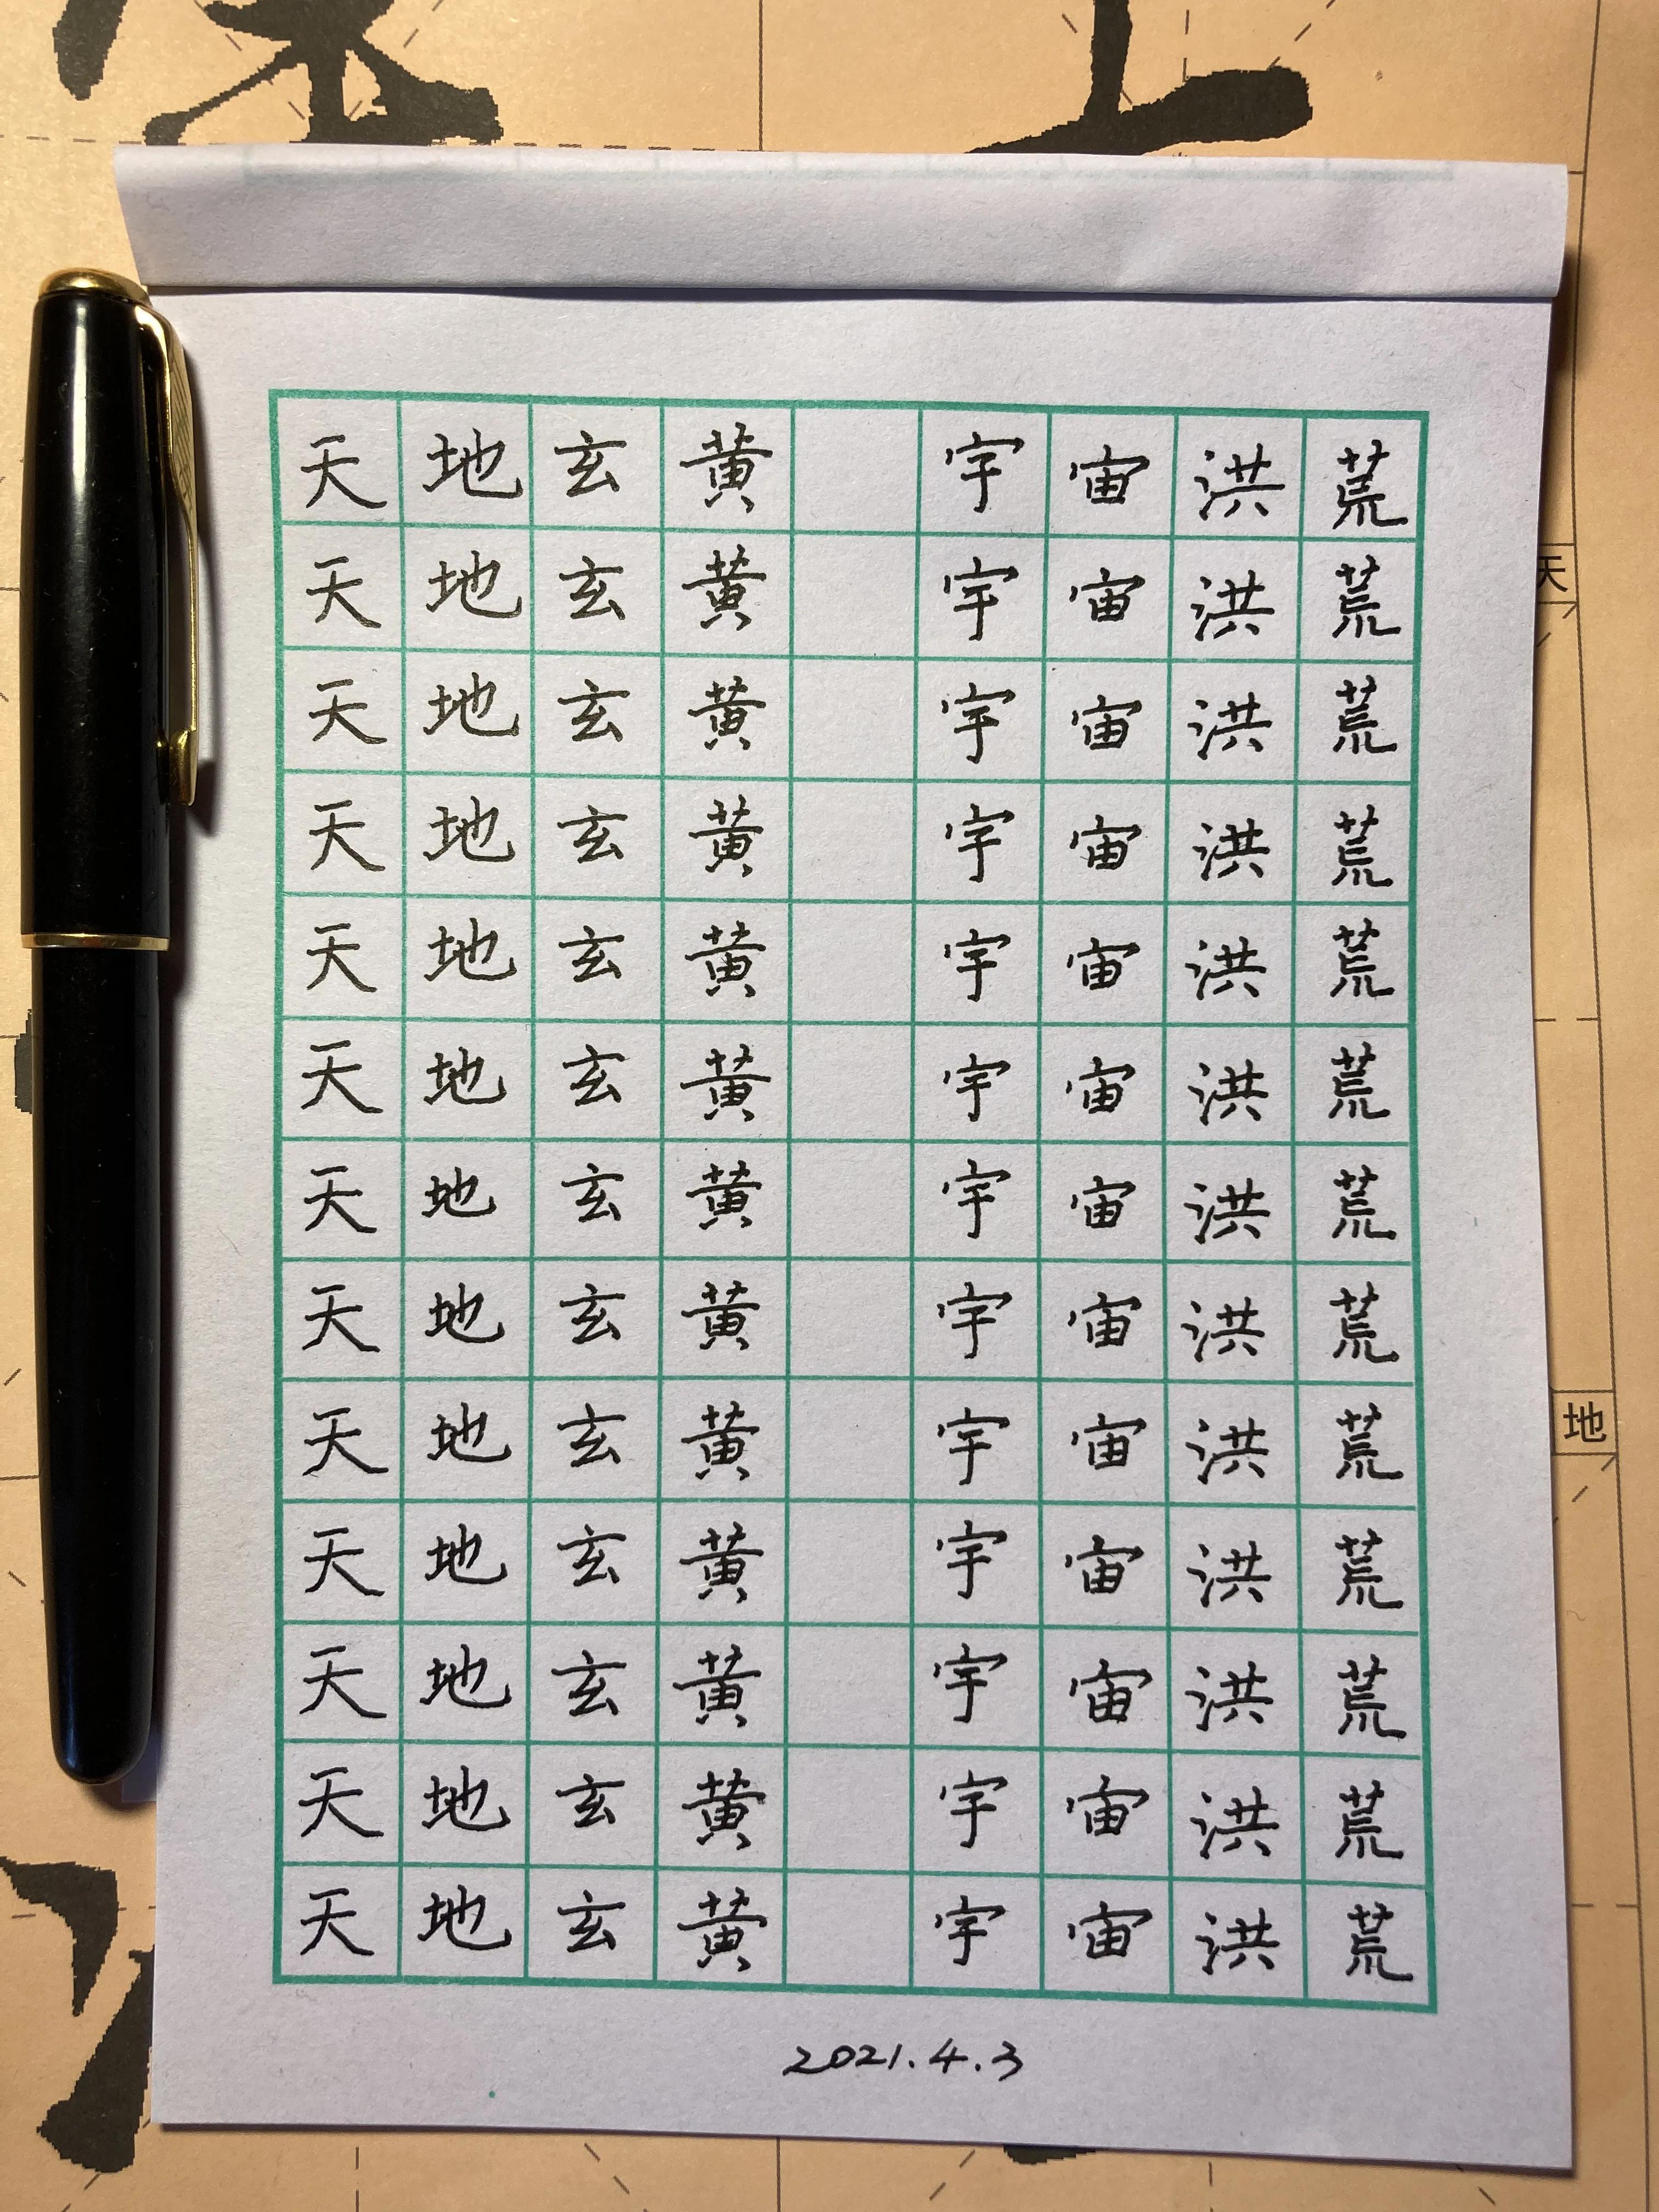 天地玄黄 宇宙洪荒
天地玄黄 宇宙洪荒
天地玄黄 宇宙洪荒
天地玄黄 宇宙洪荒
天地玄黄 宇宙洪荒
天地玄黄 宇宙洪荒
天地玄黄 宇宙洪荒
天地玄黄 宇宙洪荒
天地玄黄 宇宙洪荒
天地玄黄 宇宙洪荒
天地玄黄 宇宙洪荒
天地玄黄 宇宙洪荒
天地玄黄 宇宙洪荒
2021.4.3
天
地